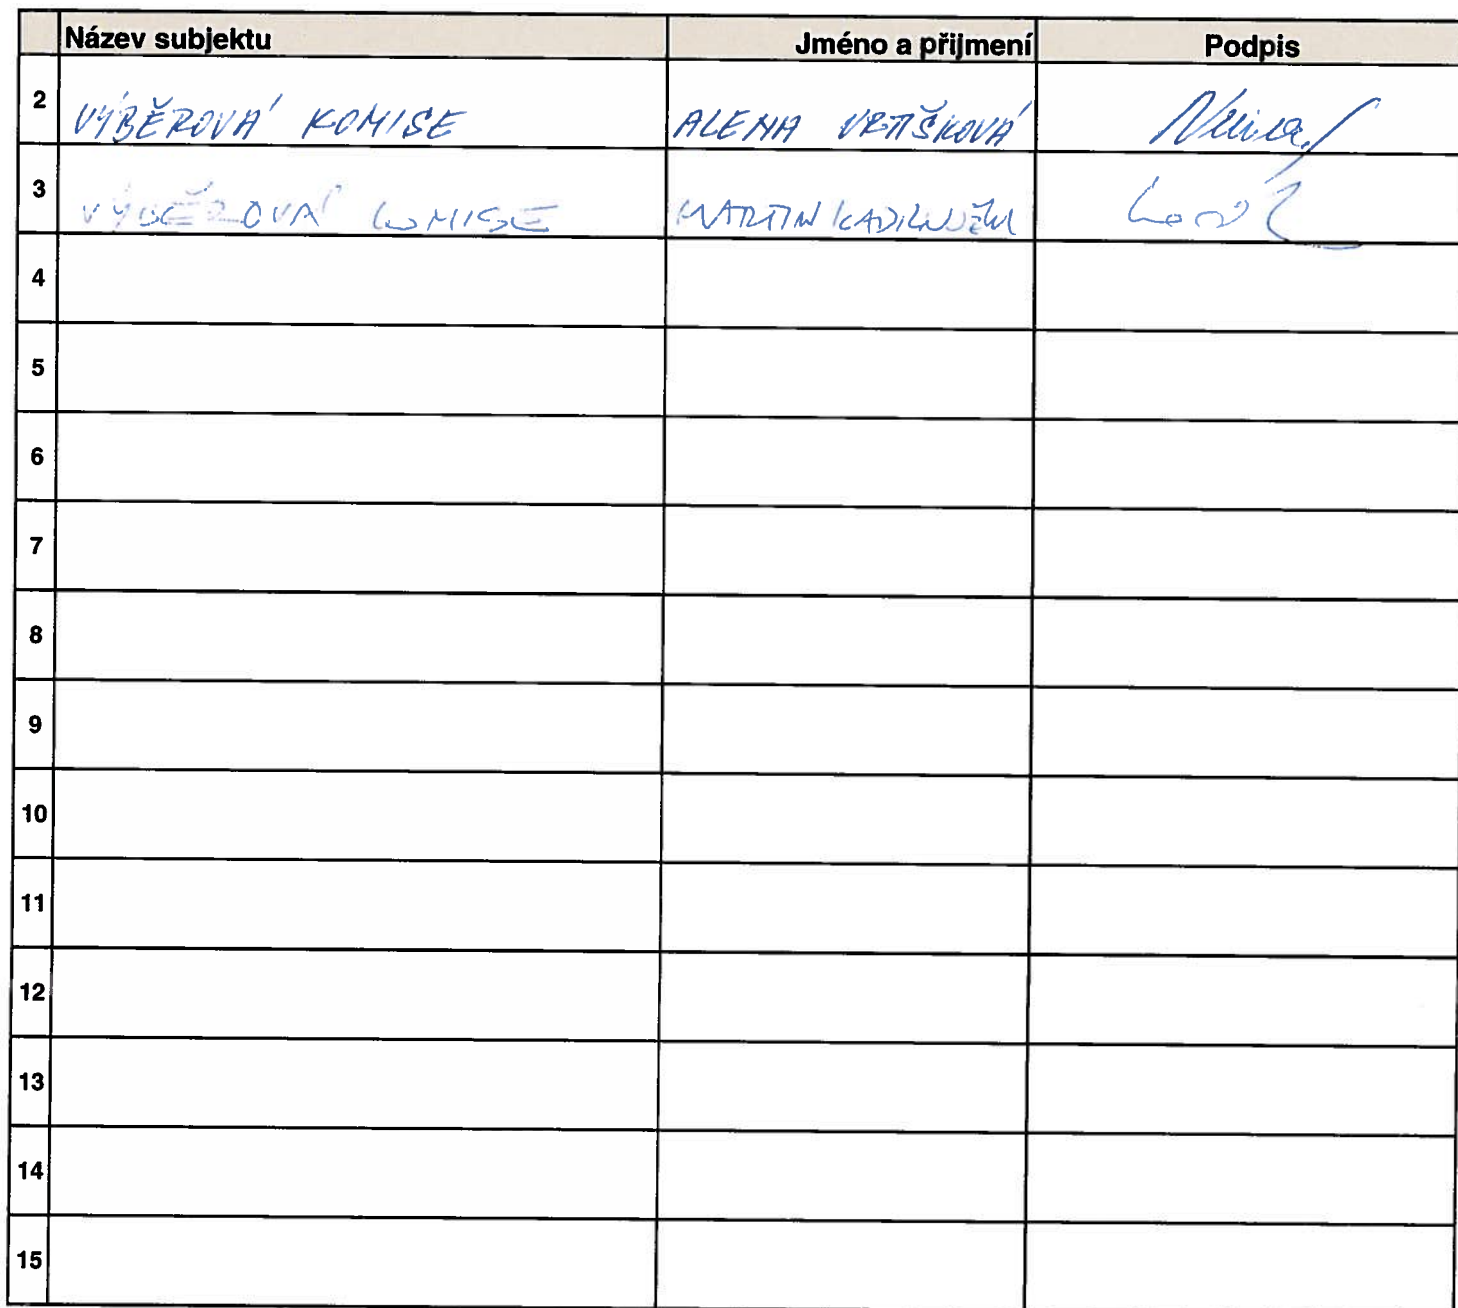 Název subjektu Jméno a přijmení Podpis
2 VÝBĚROVÁ KOMISE ALENA VRTIŠKOVÁ
3 VÝBĚROVÁ KOMISE MARTIN
4
5
6
7
8
9
10
11
12
13
14
15